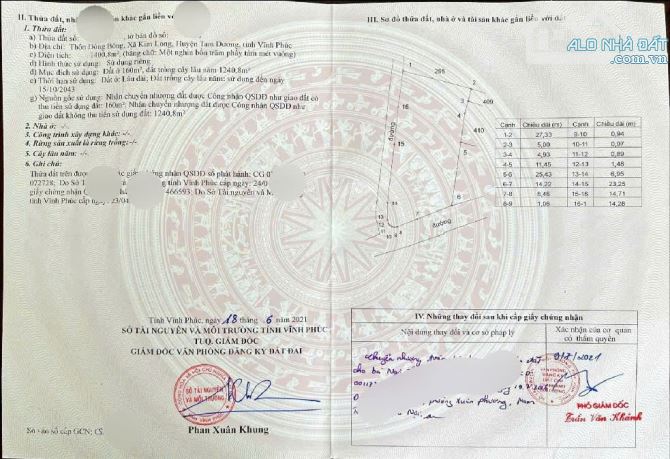 II. Thửa đất, nhà ở và tài sản khác gắn liền với
1. Thửa đất:
a) Thửa đất số: tờ bản đồ số:
b) Địa chỉ: Thôn Đồng Bông, Xã Kim Long, Huyện Tam Dương, tỉnh Vĩnh Phúc
c) Diện tích: 1400,8m² (bằng chữ: Một nghìn bốn trăm phẩy tám mét vuông)
d) Hình thức sử dụng: Sử dụng riêng
đ) Mục đích sử dụng: Đất ở 160m², đất trồng cây lâu năm 1240,8m²
e) Thời hạn sử dụng: Đất ở Lâu dài; Đất trồng cây lâu năm: sử dụng đến ngày
15/10/2043
g) Nguồn gốc sử dụng: Nhận chuyển nhượng đất được Công nhận QSDĐ như giao đất có
thu tiền sử dụng đất: 160m²; Nhận chuyển nhượng đất được Công nhận QSDĐ như
giao đất không thu tiền sử dụng đất: 1240,8m²
2. Nhà ở: -/-
3. Công trình xây dựng khác: -/-
4. Rừng sản xuất là rừng trồng: -/-
5. Cây lâu năm: -/-
6. Ghi chú:
Thửa đất trên được giấy chứng nhận QSDĐ số phát hành: CG
072728; Do Sở T tỉnh Vĩnh Phúc cấp ngày: 24/0
giấy chứng nhận Q 466593; Do Sở Tài nguyên và M
tỉnh Vĩnh Phúc cấp ngày: 23/04
Tỉnh Vĩnh Phúc, ngày 18 tháng 6 năm 2021
SỞ TÀI NGUYÊN VÀ MÔI TRƯỜNG TỈNH VĨNH PHÚC
TUQ. GIÁM ĐỐC
GIÁM ĐỐC VĂN PHÒNG ĐĂNG KÝ ĐẤT ĐAI
SỞ TÀI NGUYÊN
VÀ MÔI TRƯỜNG
Phan Xuân Khung
Số vào sổ cấp GCN: CS
III. Sơ đồ thửa đất, nhà ở và tài sản khác gắn liền với đất
ALO NHÀ ĐẤT
1
2
16
3
409
4
410
đường
15
5
6
đường
Cạnh Chiều dài (m) Cạnh Chiều dài (m)
1-2 27,33 9-10 0,94
2-3 5,00 10-11 0,97
3-4 4,93 11-12 0,89
4-5 11,45 12-13 1,48
5-6 25,43 13-14 6,95
6-7 14,22 14-15 23,25
7-8 5,46 15-16 14,71
8-9 1,06 16-1 14,28
IV. Những thay đổi sau khi cấp giấy chứng nhận
Nội dung thay đổi và cơ sở pháp lý
Xác nhận của cơ quan
có thẩm quyền
Chuyển nhượng
cho bà
phường Xuân Phương, Nam
PHÓ GIÁM ĐỐC
Trần Văn Khánh